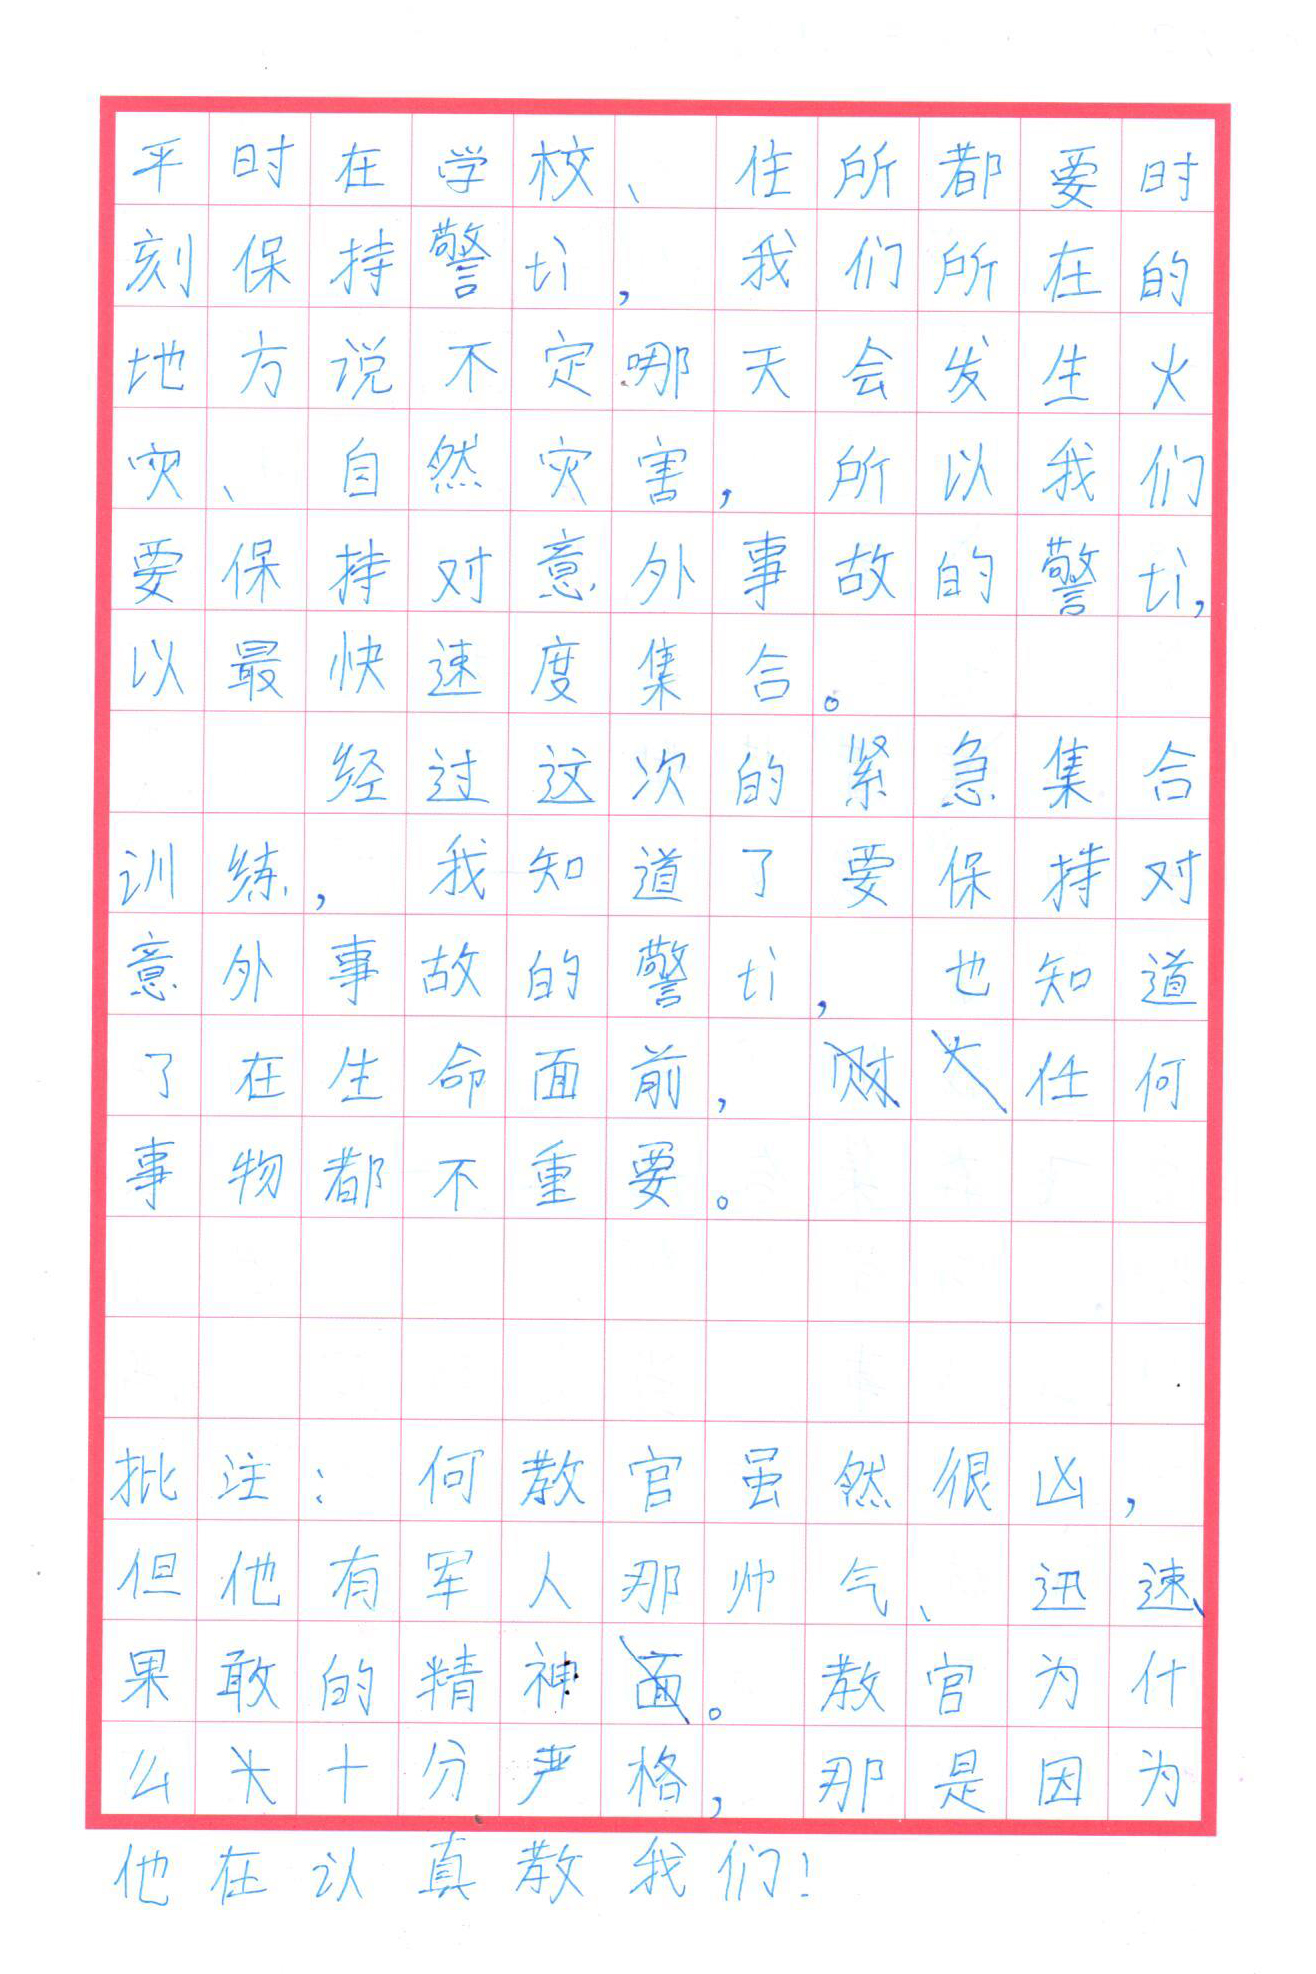 平时在学校、住所都要时
刻保持警ti，我们所在的
地方说不定哪天会发生火
灾、自然灾害，所以我们
要保持对意外事故的警ti，
以最快速度集合。
经过这次的紧急集合
训练，我知道了要保持对
意外事故的警ti，也知道
了在生命面前，任何
事物都不重要。
批注：何教官虽然很凶，
但他有军人那帅气、迅速、
果敢的精神。教官为什
么十分严格，那是因为
他在认真教我们！